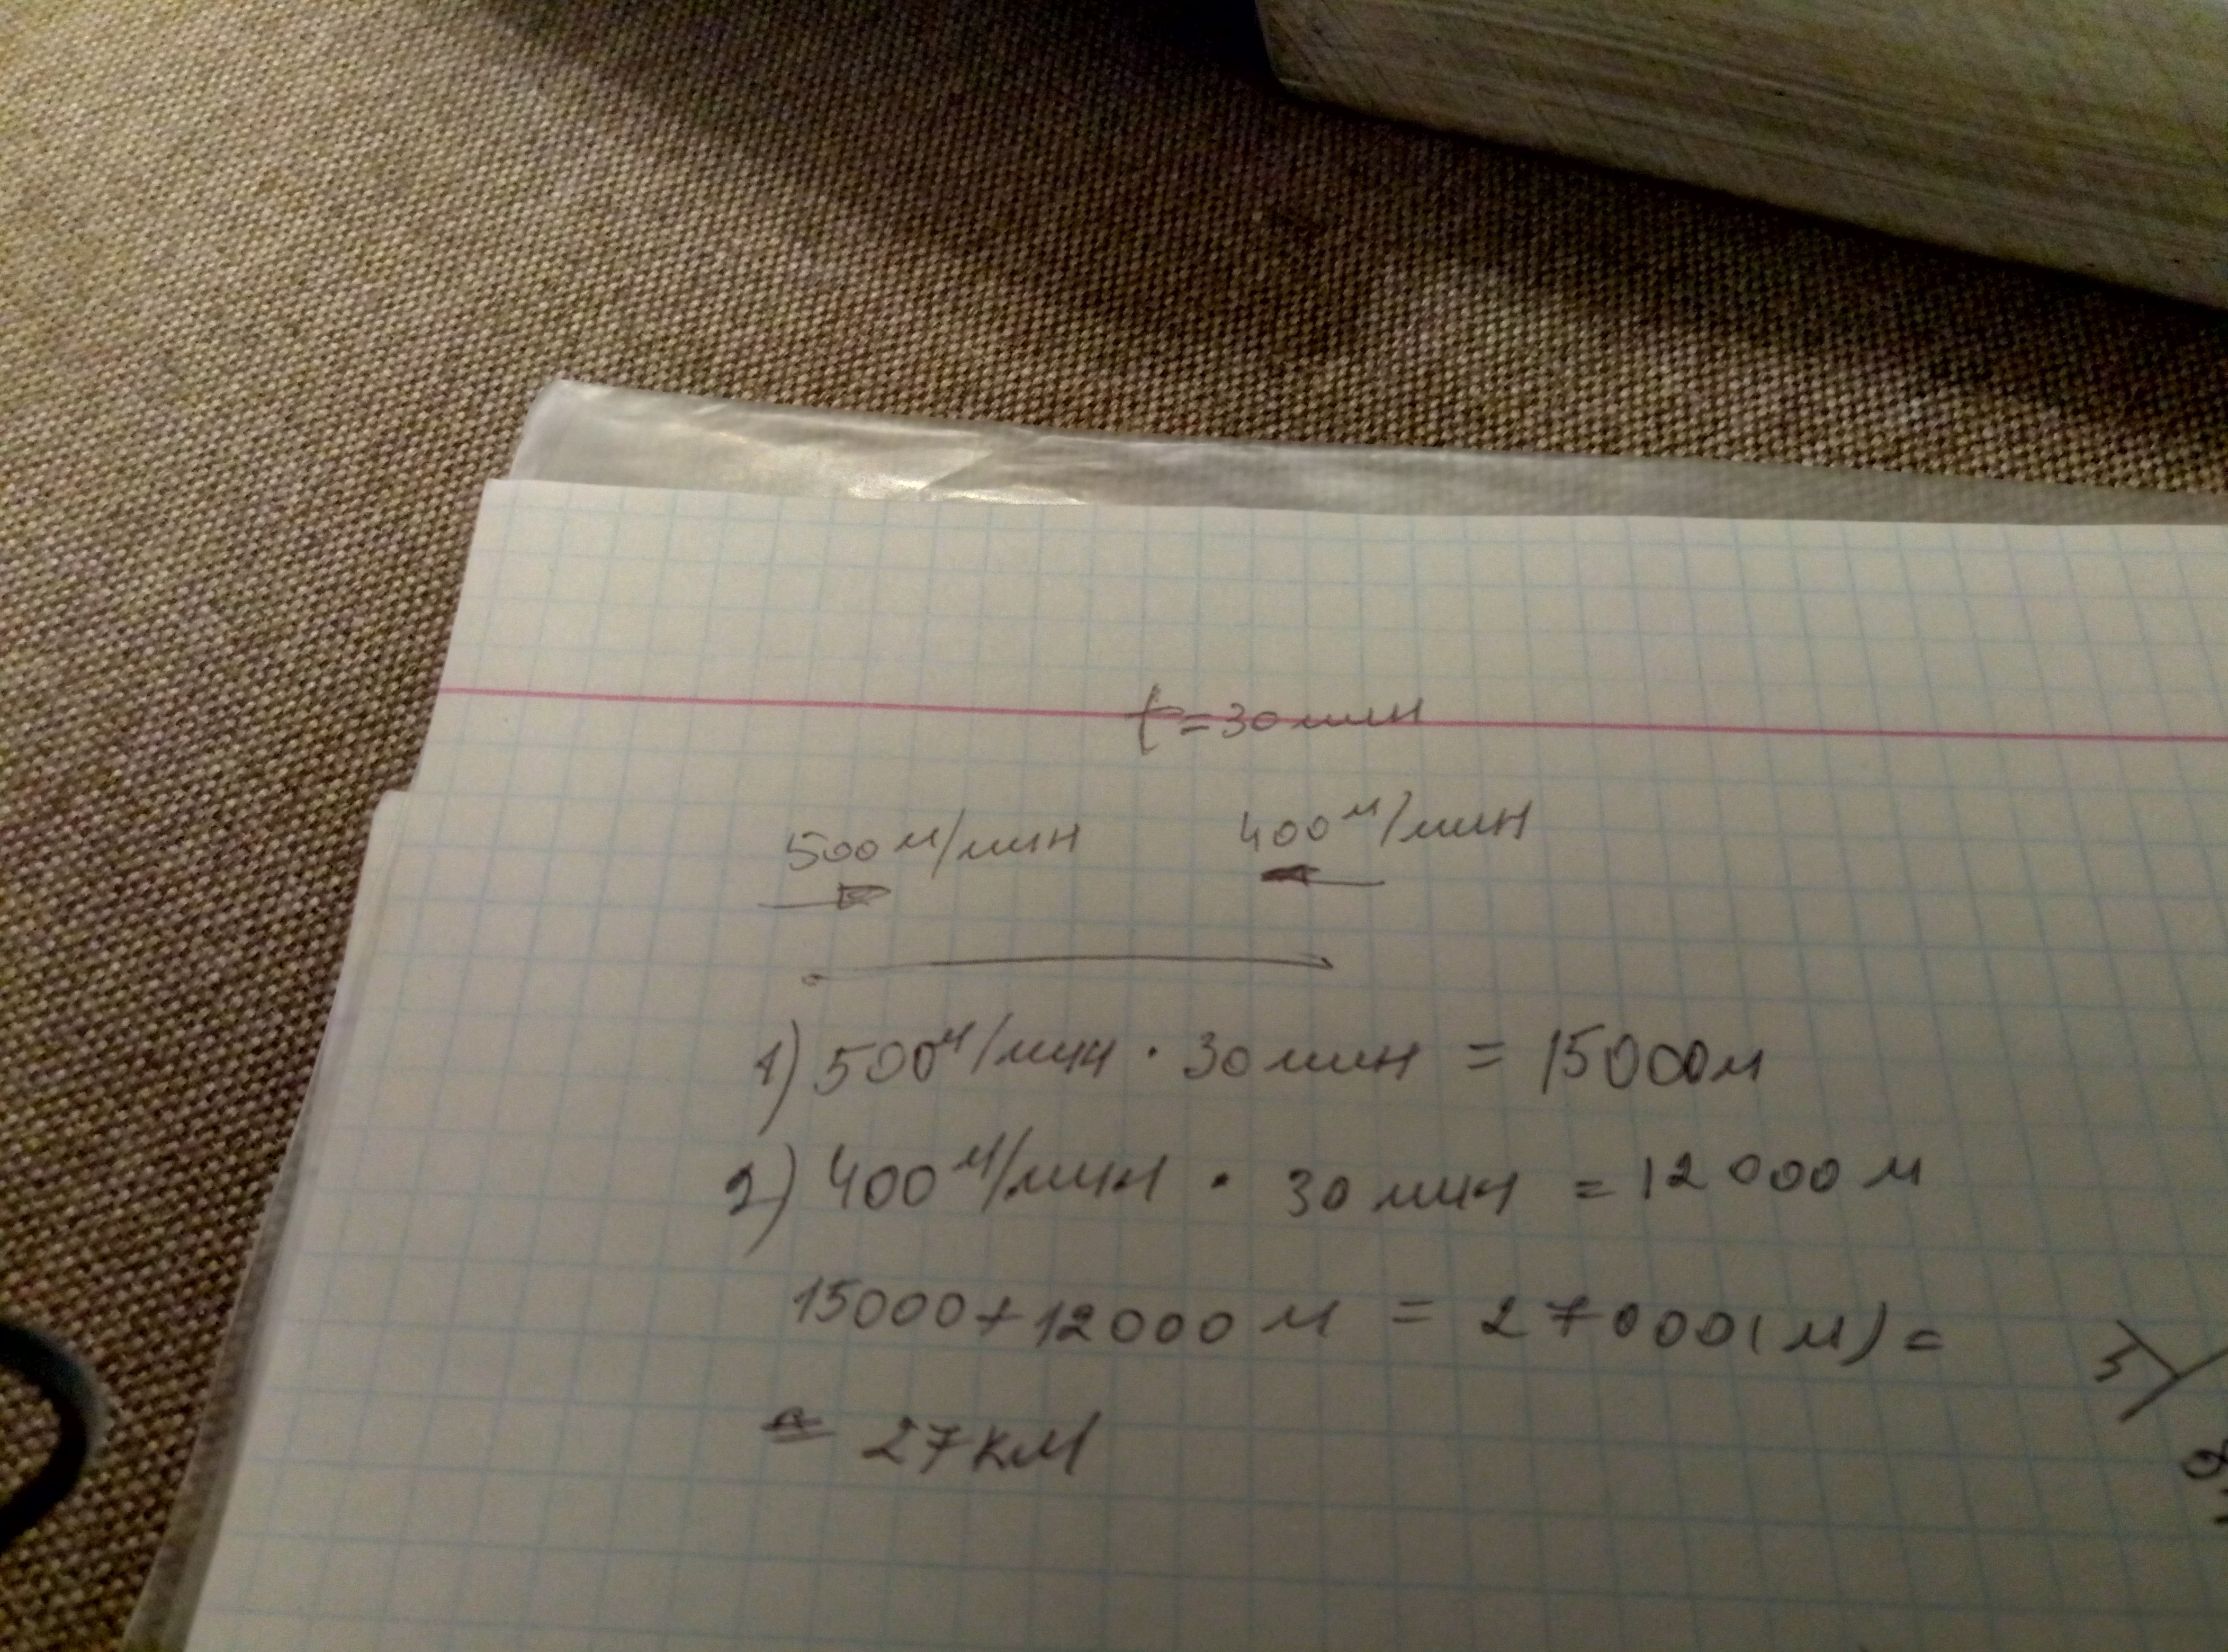 t=30мин
500м/мин 400м/мин
1) 500м/мин · 30мин = 15000м
2) 400м/мин · 30мин = 12000м
15000+12000м = 27000(м)=
= 27км